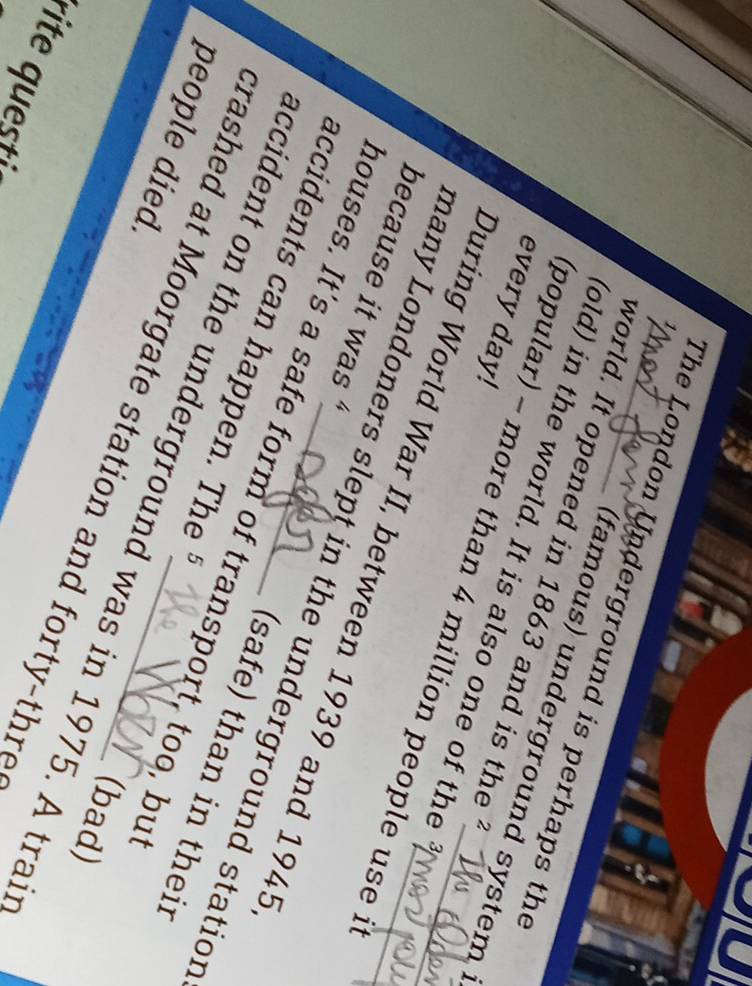 The London Underground is perhaps the
world. It opened in 1863 and is the ²
¹most famous (famous) underground system i
(old) in the world. It is also one of the ³
(popular) – more than 4 million people use it
every day!
During World War II, between 1939 and 1945,
many Londoners slept in the underground stations
because it was ⁴ safer (safe) than in their
houses. It's a safe form of transport, too, but
accidents can happen. The ⁵ the (bad)
accident on the underground was in 1975. A train
crashed at Moorgate station and forty-three
people died.
rite questi